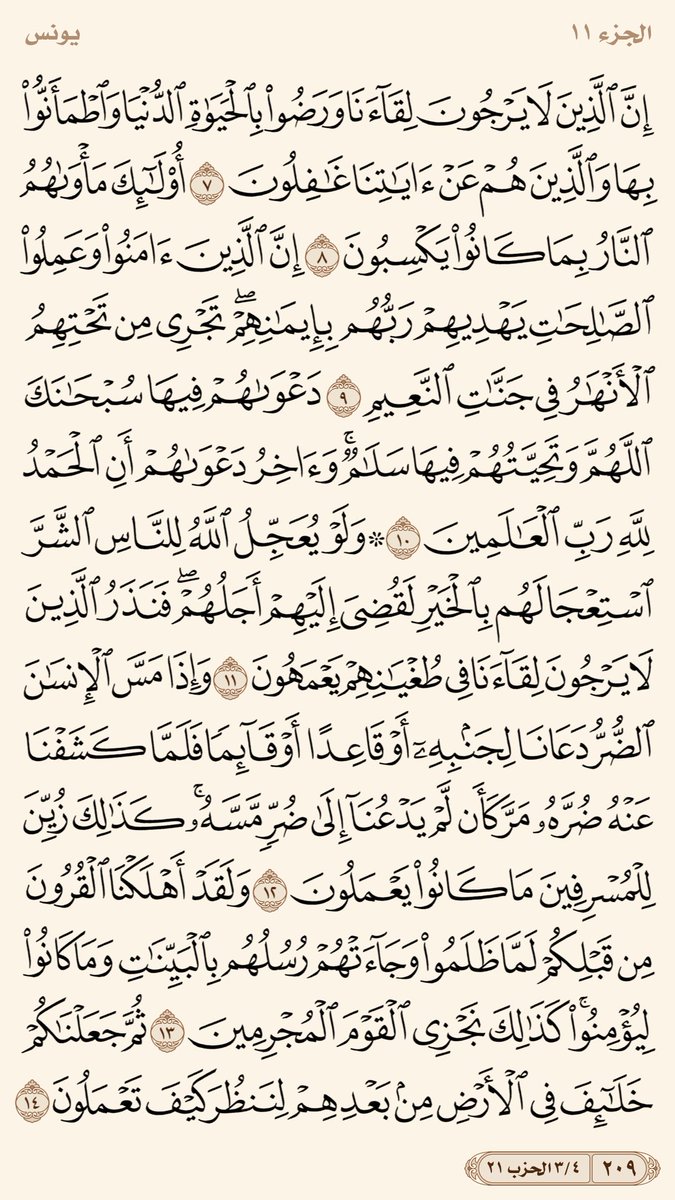 الجزء ١١
يونس
إِنَّ ٱلَّذِينَ لَا يَرۡجُونَ لِقَآءَنَا وَرَضُواْ بِٱلۡحَيَوٰةِ ٱلدُّنۡيَا وَٱطۡمَأَنُّواْ
بِهَا وَٱلَّذِينَ هُمۡ عَنۡ ءَايَٰتِنَا غَٰفِلُونَ ٧ أُوْلَٰٓئِكَ مَأۡوَىٰهُمُ
ٱلنَّارُ بِمَا كَانُواْ يَكۡسِبُونَ ٨ إِنَّ ٱلَّذِينَ ءَامَنُواْ وَعَمِلُواْ
ٱلصَّٰلِحَٰتِ يَهۡدِيهِمۡ رَبُّهُم بِإِيمَٰنِهِمۡۖ تَجۡرِي مِن تَحۡتِهِمُ
ٱلۡأَنۡهَٰرُ فِي جَنَّٰتِ ٱلنَّعِيمِ ٩ دَعۡوَىٰهُمۡ فِيهَا سُبۡحَٰنَكَ
ٱللَّهُمَّ وَتَحِيَّتُهُمۡ فِيهَا سَلَٰمٞۚ وَءَاخِرُ دَعۡوَىٰهُمۡ أَنِ ٱلۡحَمۡدُ
لِلَّهِ رَبِّ ٱلۡعَٰلَمِينَ ١٠ ۞ وَلَوۡ يُعَجِّلُ ٱللَّهُ لِلنَّاسِ ٱلشَّرَّ
ٱسۡتِعۡجَالَهُم بِٱلۡخَيۡرِ لَقُضِيَ إِلَيۡهِمۡ أَجَلُهُمۡۖ فَنَذَرُ ٱلَّذِينَ
لَا يَرۡجُونَ لِقَآءَنَا فِي طُغۡيَٰنِهِمۡ يَعۡمَهُونَ ١١ وَإِذَا مَسَّ ٱلۡإِنسَٰنَ
ٱلضُّرُّ دَعَانَا لِجَنۢبِهِۦٓ أَوۡ قَاعِدًا أَوۡ قَآئِمٗا فَلَمَّا كَشَفۡنَا
عَنۡهُ ضُرَّهُۥ مَرَّ كَأَن لَّمۡ يَدۡعُنَآ إِلَىٰ ضُرّٖ مَّسَّهُۥۚ كَذَٰلِكَ زُيِّنَ
لِلۡمُسۡرِفِينَ مَا كَانُواْ يَعۡمَلُونَ ١٢ وَلَقَدۡ أَهۡلَكۡنَا ٱلۡقُرُونَ
مِن قَبۡلِكُمۡ لَمَّا ظَلَمُواْ وَجَآءَتۡهُمۡ رُسُلُهُم بِٱلۡبَيِّنَٰتِ وَمَا كَانُواْ
لِيُؤۡمِنُواْۚ كَذَٰلِكَ نَجۡزِي ٱلۡقَوۡمَ ٱلۡمُجۡرِمِينَ ١٣ ثُمَّ جَعَلۡنَٰكُمۡ
خَلَٰٓئِفَ فِي ٱلۡأَرۡضِ مِنۢ بَعۡدِهِمۡ لِنَنظُرَ كَيۡفَ تَعۡمَلُونَ ١٤
٢٠٩ ٣/٤ الحزب ٢١